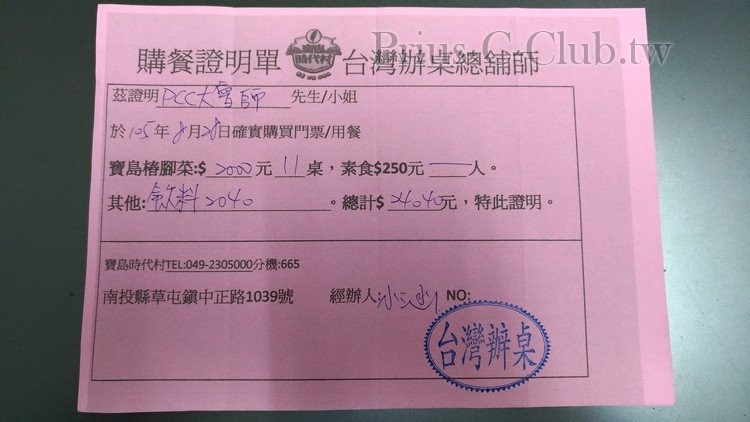 Prius C Club.tw
購餐證明單 寶島時代村 台灣辦桌總舖師
茲證明PCC大會師 先生/小姐
於105年8月28日確實購買門票/用餐
寶島椿腳菜:$ 2000元 11桌，素食$250元 一人。
其他:飲料2040。總計$24040元，特此證明。
寶島時代村TEL:049-2305000分機:665
南投縣草屯鎮中正路1039號 經辦人: NO:
台灣辦桌